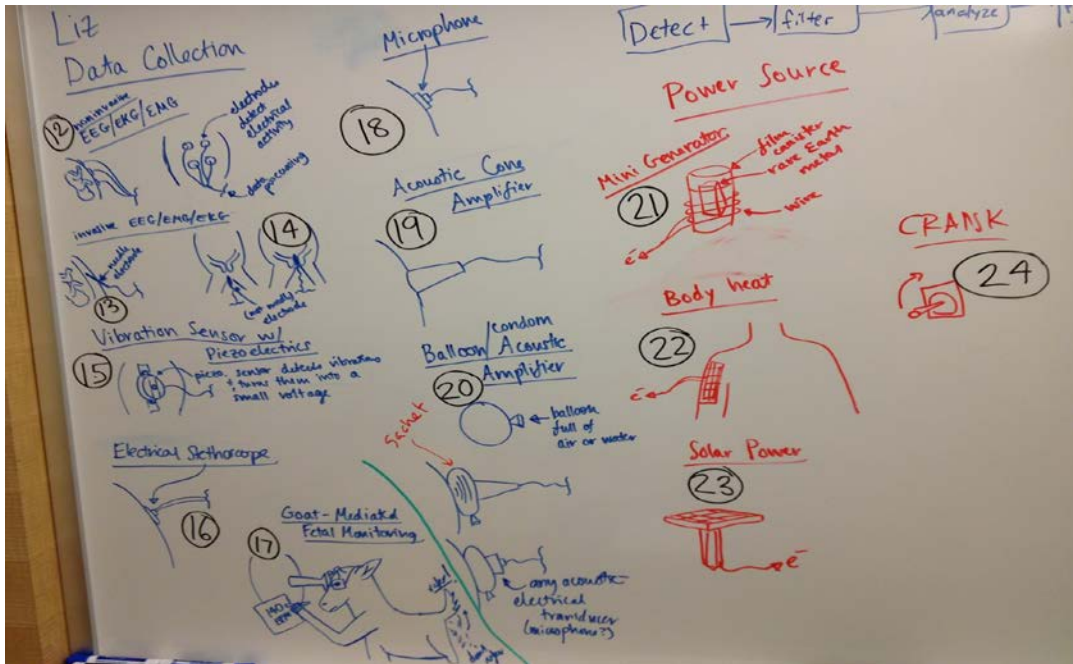 Liz
Data Collection
12
noninvasive
EEG/EKG/EMG
electrodes
detect
electrical
activity
data
processing
invasive EEG/EMG/EKG
needle
electrode
13
14
electrode
Vibration Sensor w/
Piezoelectrics
15
piezo. sensor detects vibrations
+ turns them into a
small voltage
Electrical Stethoscope
16
Goat-Mediated
Fetal Monitoring
17
140
Microphone
18
Acoustic Cone
Amplifier
19
Balloon/condom
Acoustic
Amplifier
20
balloon
full of
air or water
Sachet
any acoustic-
electrical
transducer
(microphone?)
Detect
filter
analyze
Power Source
Mini Generator
21
film
canister
rare Earth
metal
wire
e-
Body heat
22
e-
Solar Power
23
e-
CRANK
24